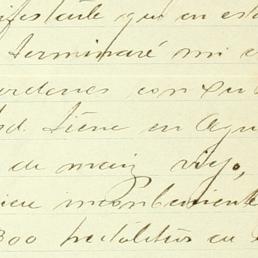 ifestarle que en est
terminaré mi c
ordenes con
d. tiene en Agu
de maiz viejo,
inconbeniente
300 hectolitros en